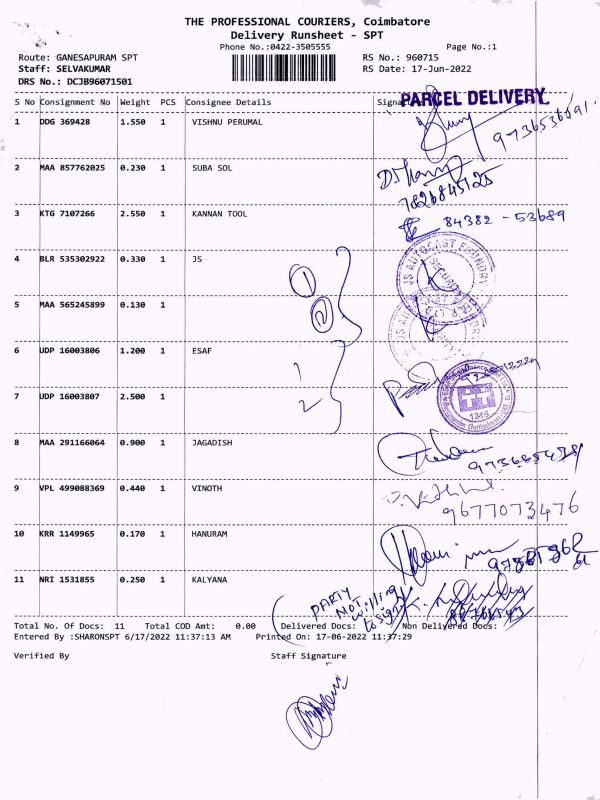 THE PROFESSIONAL COURIERS, Coimbatore
Delivery Runsheet - SPT
Phone No.:0422-3505555
Page No.:1
Route: GANESAPURAM SPT
RS No.: 960715
Staff: SELVAKUMAR
RS Date: 17-Jun-2022
DRS No.: DCJB96071501
S No Consignment No Weight PCS Consignee Details
PARCEL DELIVERY
1 DDG 369428 1.550 1 VISHNU PERUMAL
2 MAA 857762025 0.230 1 SUBA SOL
7826845125
3 KTG 7107266 2.550 1 KANNAN TOOL
84382 - 53689
4 BLR 535302922 0.330 1 JS
JS AUTOCAST FOUNDRY
1
5 MAA 565245899 0.130 1
2
6 UDP 16003806 1.200 1 ESAF
1
7 UDP 16003807 2.500 1
2
1246
8 MAA 291166064 0.900 1 JAGADISH
9 VPL 499088369 0.440 1 VINOTH
9677073476
10 KRR 1149965 0.170 1 HANURAM
11 NRI 1531855 0.250 1 KALYANA
PARTY
NOT willing
to sign
Total No. Of Docs: 11 Total COD Amt: 0.00 Delivered Docs: Non Delivered Docs:
Entered By :SHARONSPT 6/17/2022 11:37:13 AM Printed On: 17-06-2022 11:37:29
Verified By Staff Signature